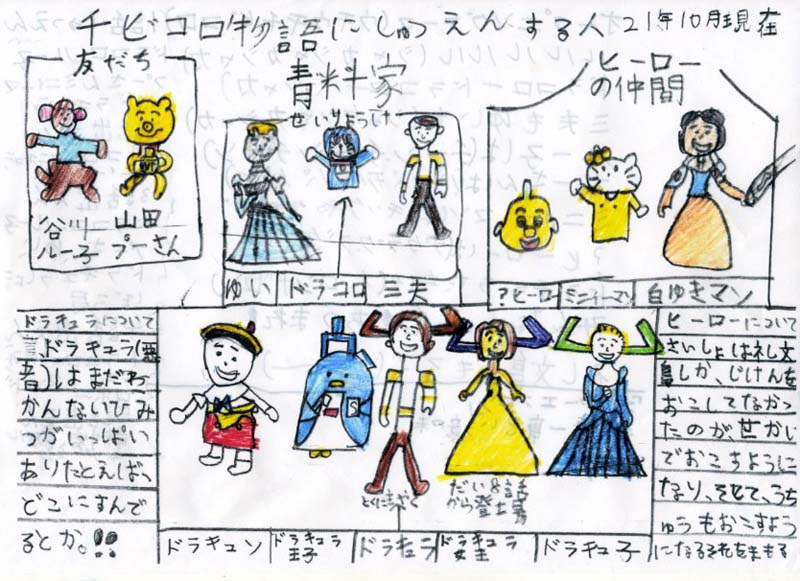 チビコロ物語にしゅつえんする人 21年10月現在
友だち
谷川ルー子
山田プーさん
青料家
せいりょうけ
ゆい
ドラコロ
三夫
ヒーロー
の仲間
?ヒーロー
ミニィーマン
白ゆきマン
ドラキュラについて
ドラキュラ(悪
者)はまだわ
かんないひみ
つがいっぱい
ありたとえば、
どこにすんで
るとか。!!
だい8話
から登場
ドラキュン
ドラキュラ王子
ドラキュラ
ドラキュラ女王
ドラキュ子
ヒーローについて
さいしょはネし文
島しか、じけんを
おこしてなかっ
たのが、せかい
でおこるように
なり、そして、うち
ゅうもおこすよう
になるそれをまもる